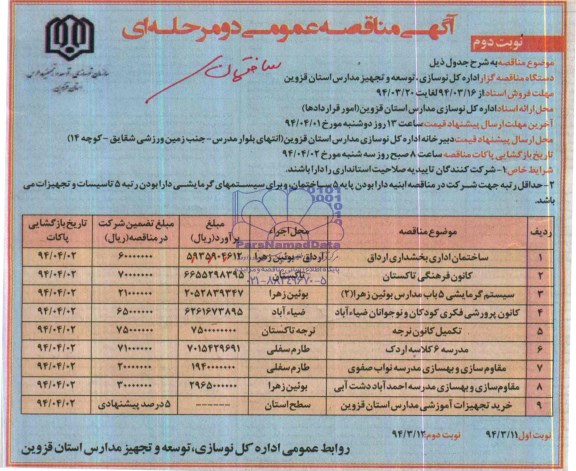 آگهی مناقصه عمومی دو مرحله‌ای
نوبت دوم
سازمان نوسازی، توسعه و تجهیز مدارس
استان قزوین
ساختمان
موضوع مناقصه به شرح جدول ذیل
دستگاه مناقصه گزار اداره کل نوسازی، توسعه و تجهیز مدارس استان قزوین
مهلت فروش اسناد از ۹۴/۰۳/۱۶ لغایت ۹۴/۰۳/۲۰
محل ارائه اسناد اداره کل نوسازی مدارس استان قزوین (امور قراردادها)
آخرین مهلت ارسال پیشنهاد قیمت ساعت ۱۳ روز دوشنبه مورخ ۹۴/۰۴/۰۱
محل ارسال پیشنهاد قیمت دبیرخانه اداره کل نوسازی مدارس استان قزوین (انتهای بلوار مدرس - جنب زمین ورزشی شقایق - کوچه ۱۴)
تاریخ بازگشایی پاکات مناقصه ساعت ۸ صبح روز سه شنبه مورخ ۹۴/۰۴/۰۲
شرایط خاص ۱- شرکت کنندگان تاییدیه صلاحیت استانداری را دارا باشند.
۲- حداقل رتبه جهت شرکت در مناقصه ابنیه دارا بودن پایه ۵ ساختمان، و برای سیستمهای گرمایشی دارا بودن رتبه ۵ تاسیسات و تجهیزات می
باشد.
ParaNamadData
پایگاه اطلاع رسانی مناقصه و مزایده
۰۲۱-۸۸۳۴۹۶۷۰-۵
ردیف موضوع مناقصه محل اجراء مبلغ برآورد (ریال) مبلغ تضمین شرکت در مناقصه (ریال) تاریخ بازگشایی پاکات
۱ ساختمان اداری بخشداری ارداق ارداق - بوئین زهرا ۵۹۳۵۹۰۴۶۱۲ ۶۰۰۰۰۰۰۰ ۹۴/۰۴/۰۲
۲ کانون فرهنگی تاکستان تاکستان ۶۶۵۵۲۹۸۳۹۵ ۷۰۰۰۰۰۰۰ ۹۴/۰۴/۰۲
۳ سیستم گرمایشی ۵ باب مدارس بوئین زهرا (۲) بوئین زهرا ۲۰۵۲۸۳۹۳۴۷ ۲۱۰۰۰۰۰۰ ۹۴/۰۴/۰۲
۴ کانون پرورشی فکری کودکان و نوجوانان ضیاء آباد ضیاء آباد ۶۲۶۱۶۷۳۸۹۵ ۶۵۰۰۰۰۰۰ ۹۴/۰۴/۰۲
۵ تکمیل کانون نرجه نرجه تاکستان ۷۵۰۰۰۰۰۰۰ ۷۵۰۰۰۰۰۰ ۹۴/۰۴/۰۲
۶ مدرسه ۶ کلاسه اردک طارم سفلی ۷۰۱۵۴۲۹۶۹۱ ۷۱۰۰۰۰۰۰ ۹۴/۰۴/۰۲
۷ مقاوم سازی و بهسازی مدرسه نواب صفوی طارم سفلی ۱۹۴۰۰۰۰۰۰۰ ۲۰۰۰۰۰۰۰ ۹۴/۰۴/۰۲
۸ مقاوم سازی و بهسازی مدرسه احمدآباد دشت آبی بوئین زهرا ۲۹۶۵۰۰۰۰۰۰ ۳۰۰۰۰۰۰۰ ۹۴/۰۴/۰۲
۹ خرید تجهیزات آموزشی مدارس استان قزوین سطح استان ------ ۵ درصد پیشنهادی ۹۴/۰۴/۰۲
نوبت اول ۹۴/۳/۱۱ نوبت دوم ۹۴/۳/۱۲
روابط عمومی اداره کل نوسازی، توسعه و تجهیز مدارس استان قزوین